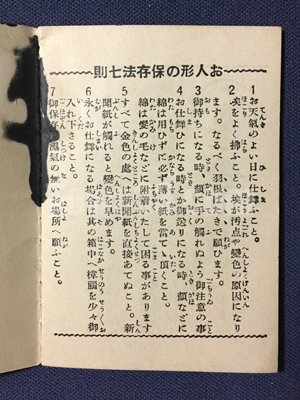 お人形の保存法七則
1 お天氣のよい日に仕舞ふこと。
2 埃をよく拂ふこと。埃が汚点や變色の原因になり
ます。なるべく羽根ばたきで願ひます。
3 御持ちになる時、顏に手の觸れぬよう御注意の事
4 お仕舞ひになる時とか御送りになる時、顏などに
綿は用ひずに必ず薄い紙を當てゝ頂くこと。
綿は髮の毛などに附着いたして困る事があります
5 すべて金色の處には新聞紙を直接あてぬこと。新
聞紙が觸れると變色を早めます。
6 永くお仕舞になる場合は其の箱中へ樟腦を少々御
入れ下さること。
7 御保存は濕氣の無いお場所へ願ふこと。